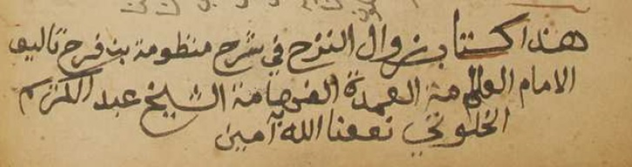 هذا كتاب زوال الترح في شرح منظومة بن فرح تاليف
الامام العلامة العمدة الفهامة الشيخ عبد الكريم
الخلوتي نفعنا الله به آمين